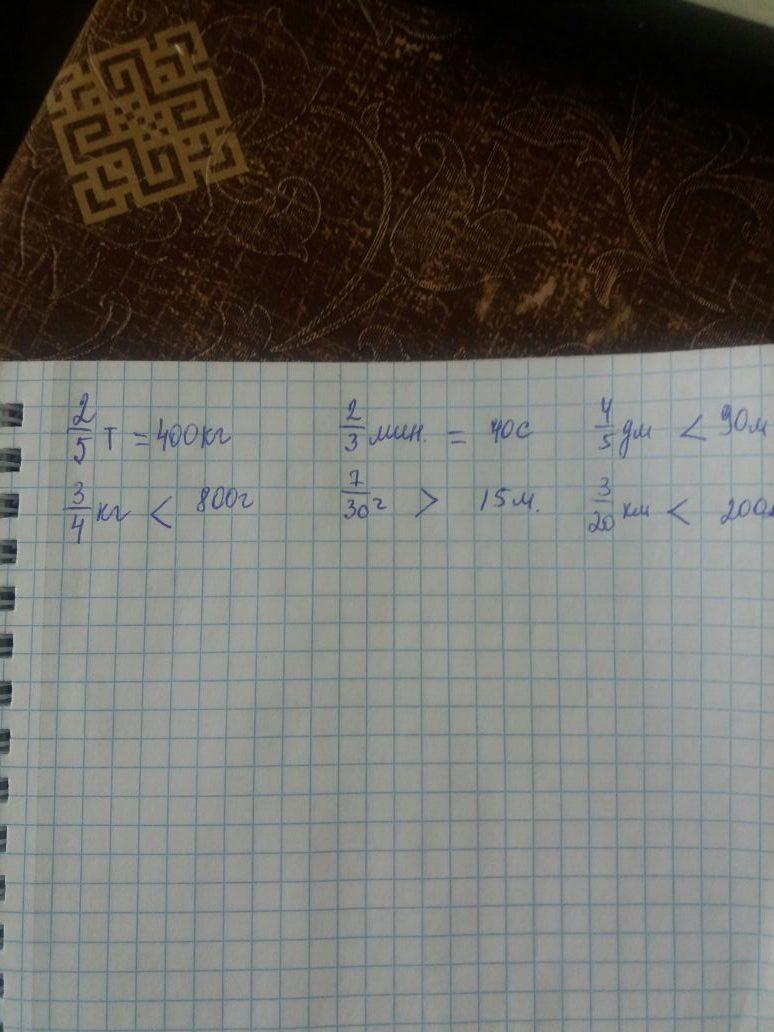 2/5 т = 400кг 2/3 мин. = 40с 4/5 дм < 90м
3/4 кг < 800г 7/30 г > 15м. 3/20 км < 200